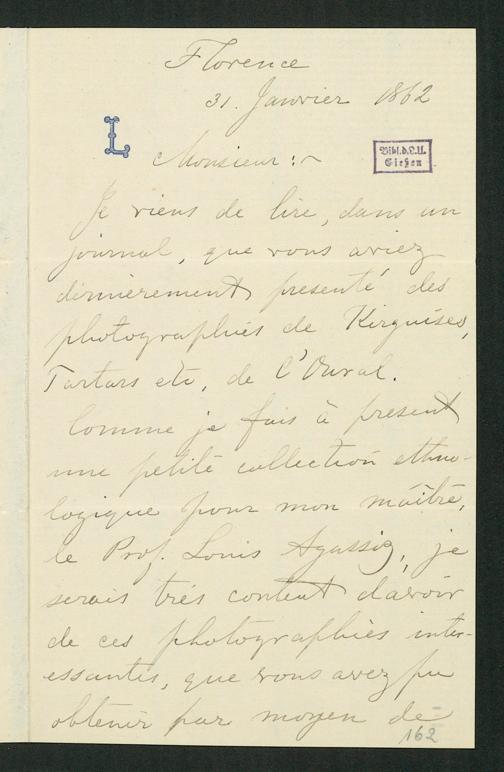 Florence
31. Janvier 1862
L
Monsieur:~
Bibl.d.L.U.
Gießen
Je viens de lire, dans un
journal, que vous aviez
dernièrement presenté des
photographies de Kirguises,
Tartars etc, de l'Oural.
Comme je fais à present
une petite collection ethno-
logique pour mon maître,
le Prof. Louis Agassiz, je
serais très content d'avoir
de ces photographies inter-
essantes, que vous avez pu
obtenir par moyen de
162